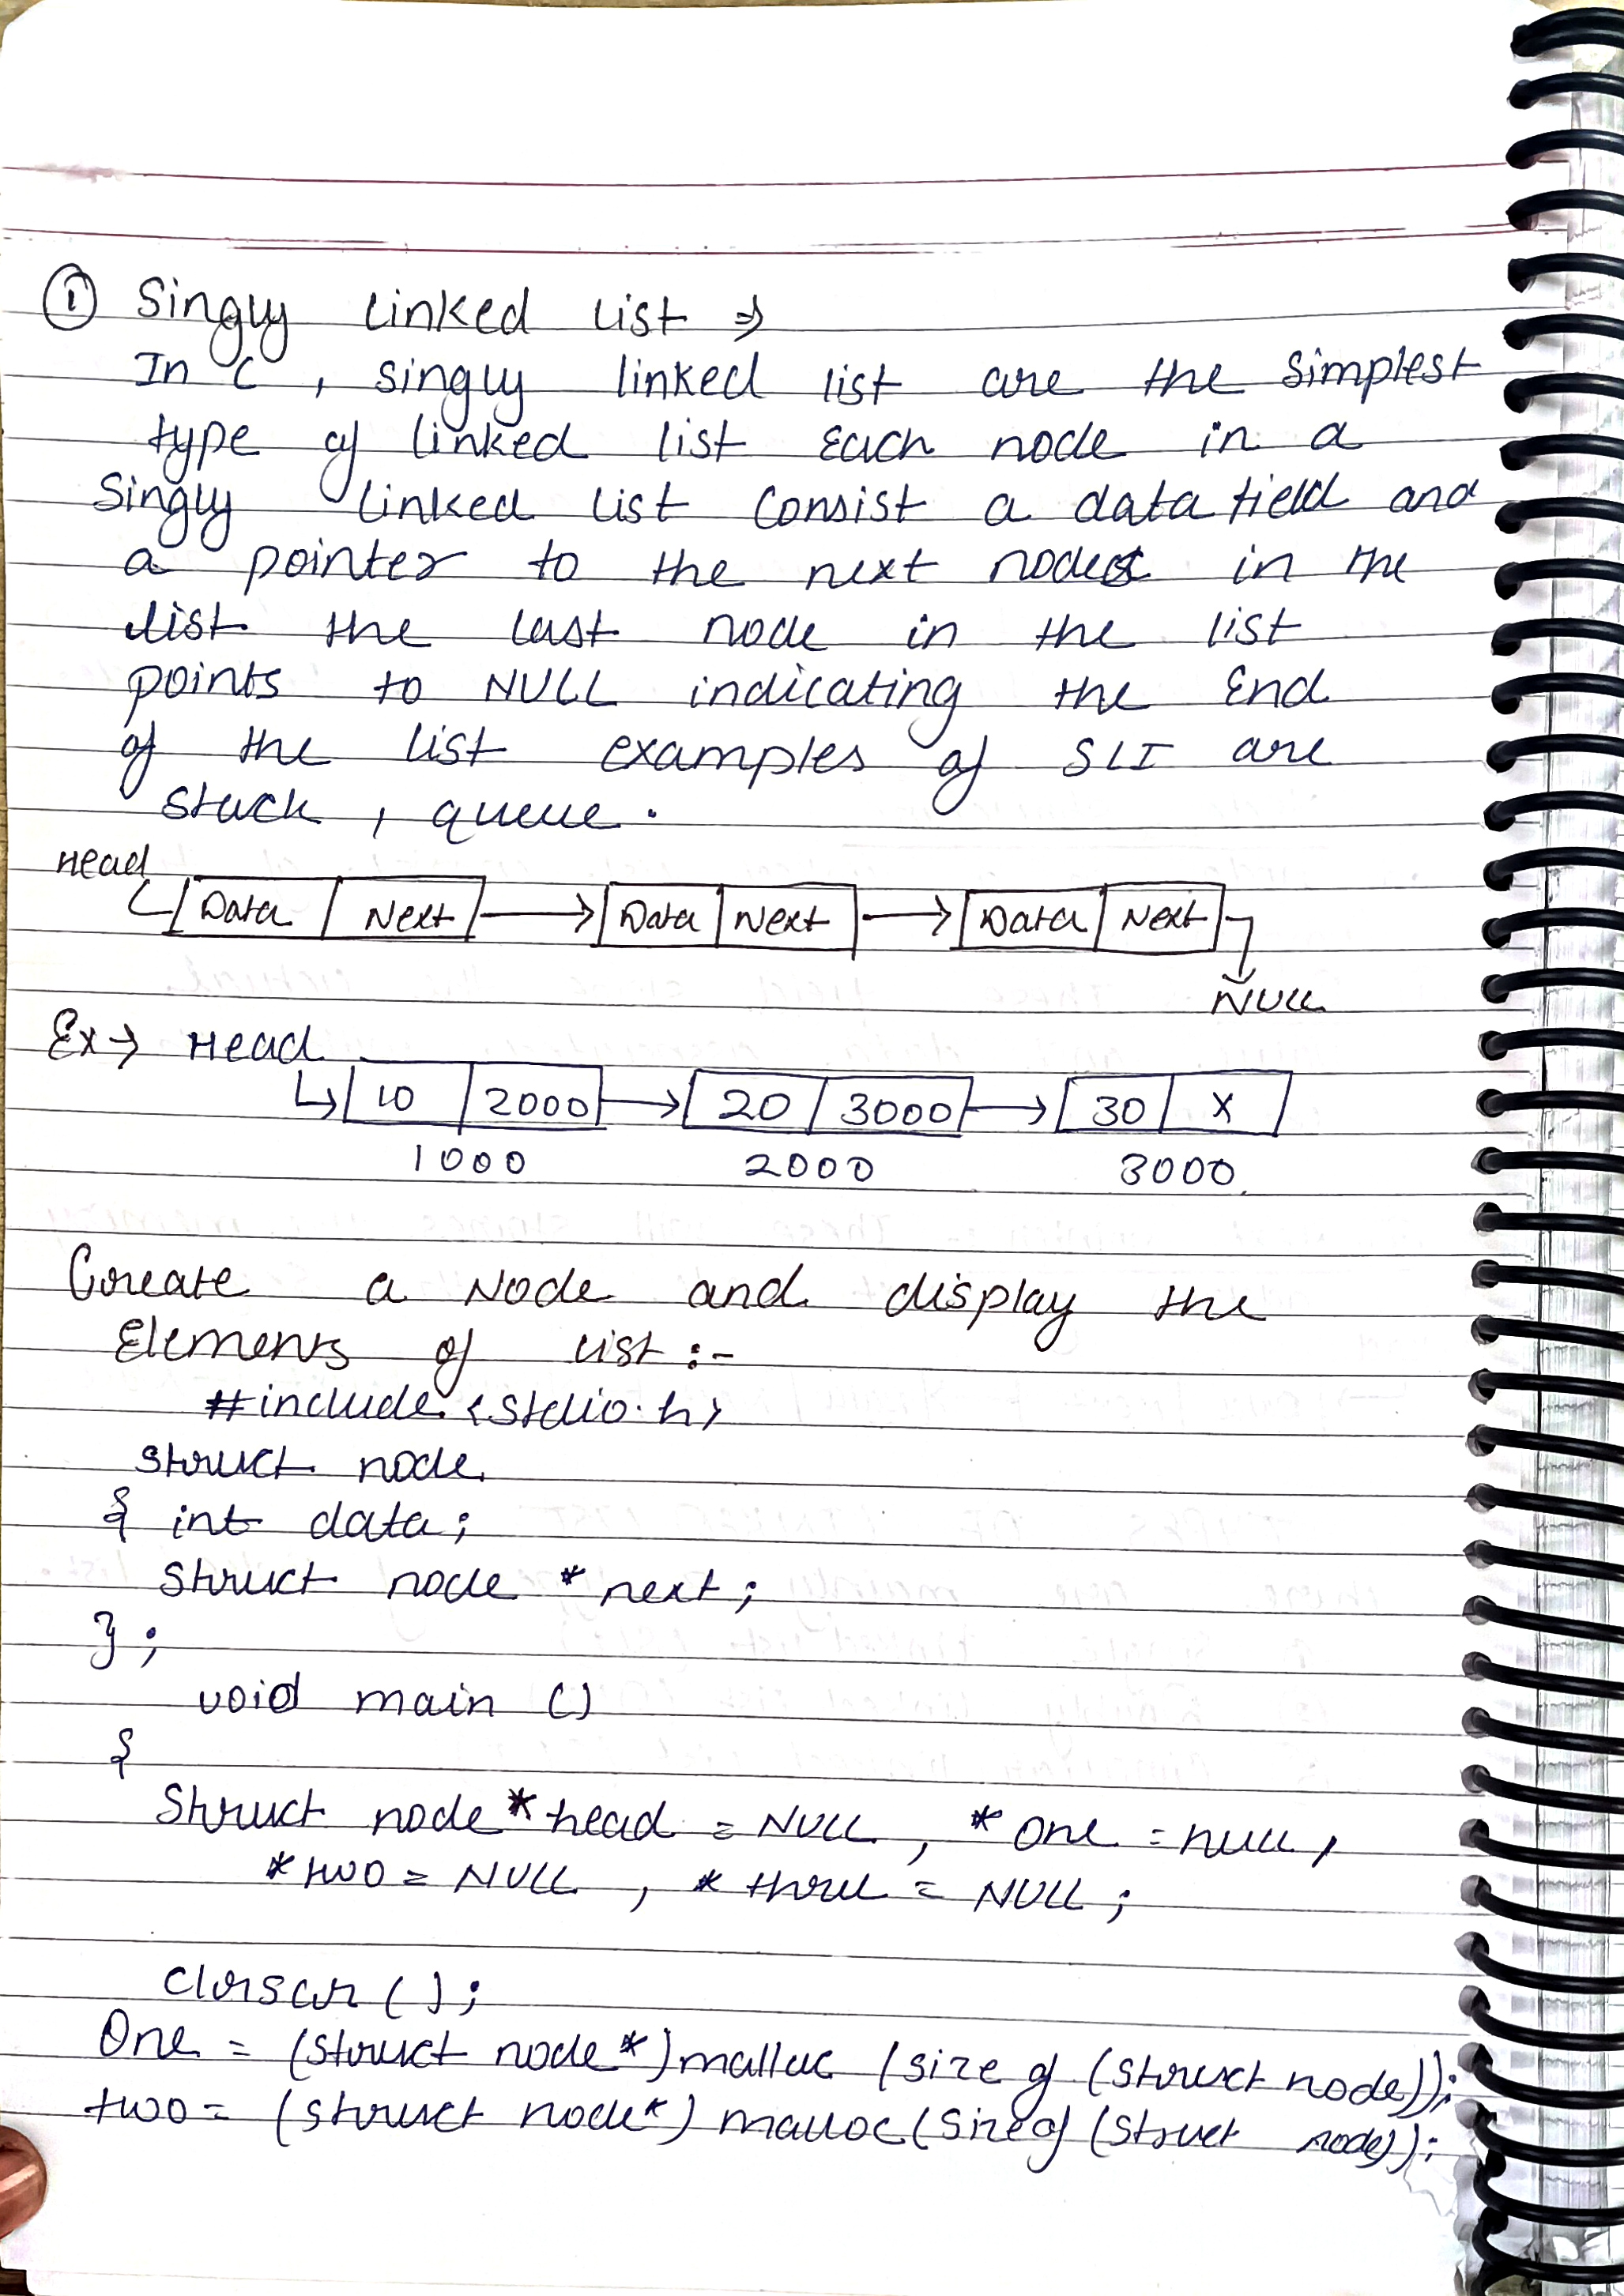 ① Singly linked list ⇒
In C , singly linked list are the simplest
type of linked list Each node in a
Singly linked list consist a data field and
a pointer to the next nodes in the
list the last node in the list
points to NULL indicating the End
of the list examples of SLI are
stack , queue .
Head
Data Next → Data Next → Data Next
NULL
Ex → Head
10 2000 → 20 3000 → 30 X
1000 2000 3000
Create a Node and display the
Elements of list :-
#include <stdio.h>
struct node
{ int data ;
struct node * next ;
} ;
void main ()
{
Struct node * head = NULL , * one = null ,
* two = NULL , * three = NULL ;
clrscr ( ) ;
One = (struct node*) malloc (size of (struct node)) ;
two = (struct node*) malloc (size of (struct node)) ;